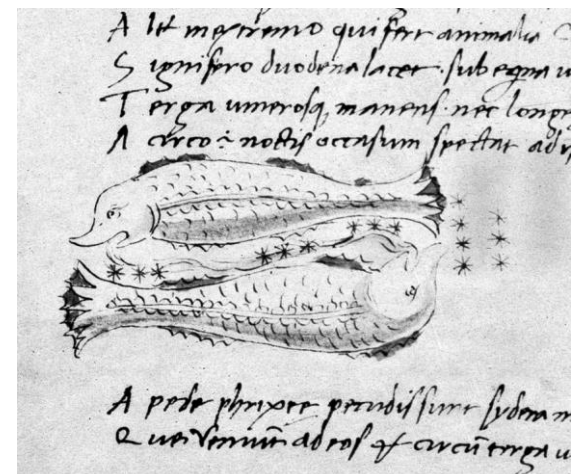 A st in extremo qui fert animalia C
S ignifero duodena iacet sub equa u
T erga umerosq, manens nec longe
A arco noctis occasum spectat ad
A pede phrixee pecudis sunt sydera
Q uei veniunt ad eos circū terga u